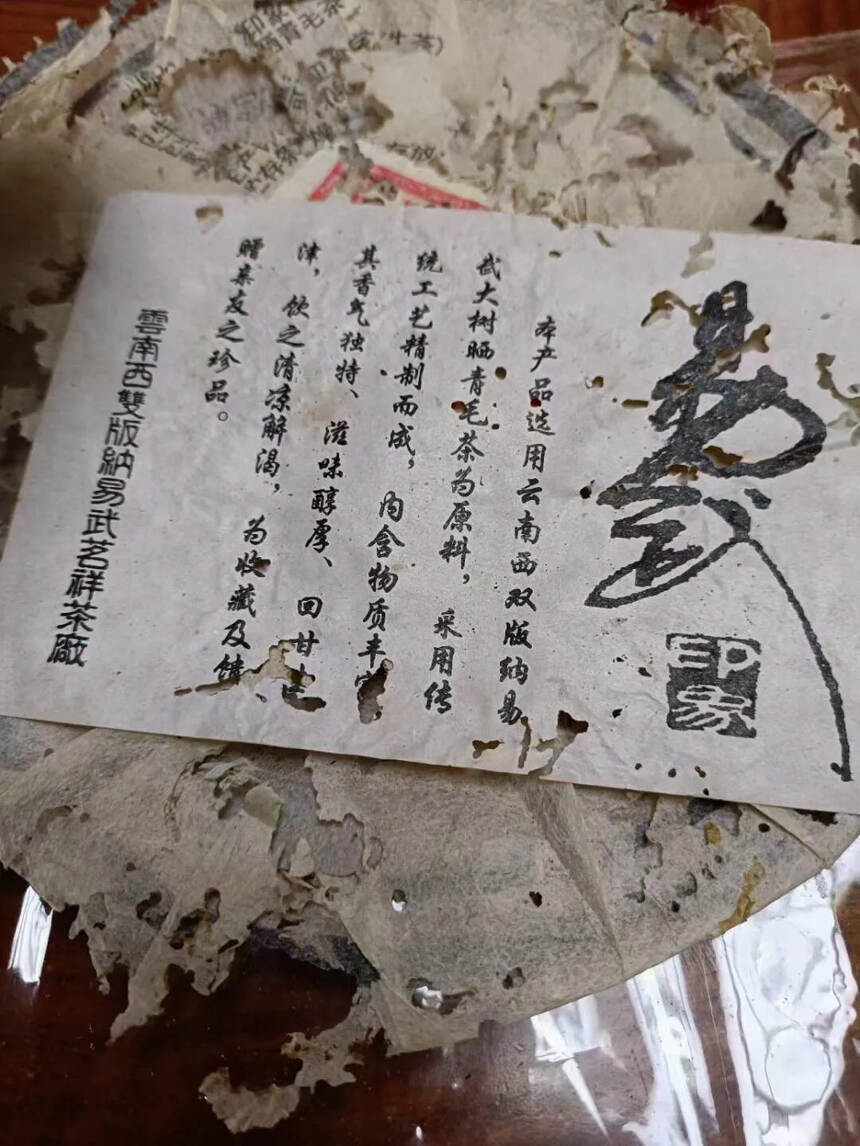 印象
晒青毛茶
存放
易武
印象
本产品选用云南西双版纳易
武大树晒青毛茶为原料，采用传
统工艺精制而成，内含物质丰富，
其香气独特、滋味醇厚、回甘生
津，饮之清凉解渴，为收藏及馈、
赠亲友之珍品。
雲南西雙版納易武茗祥茶廠